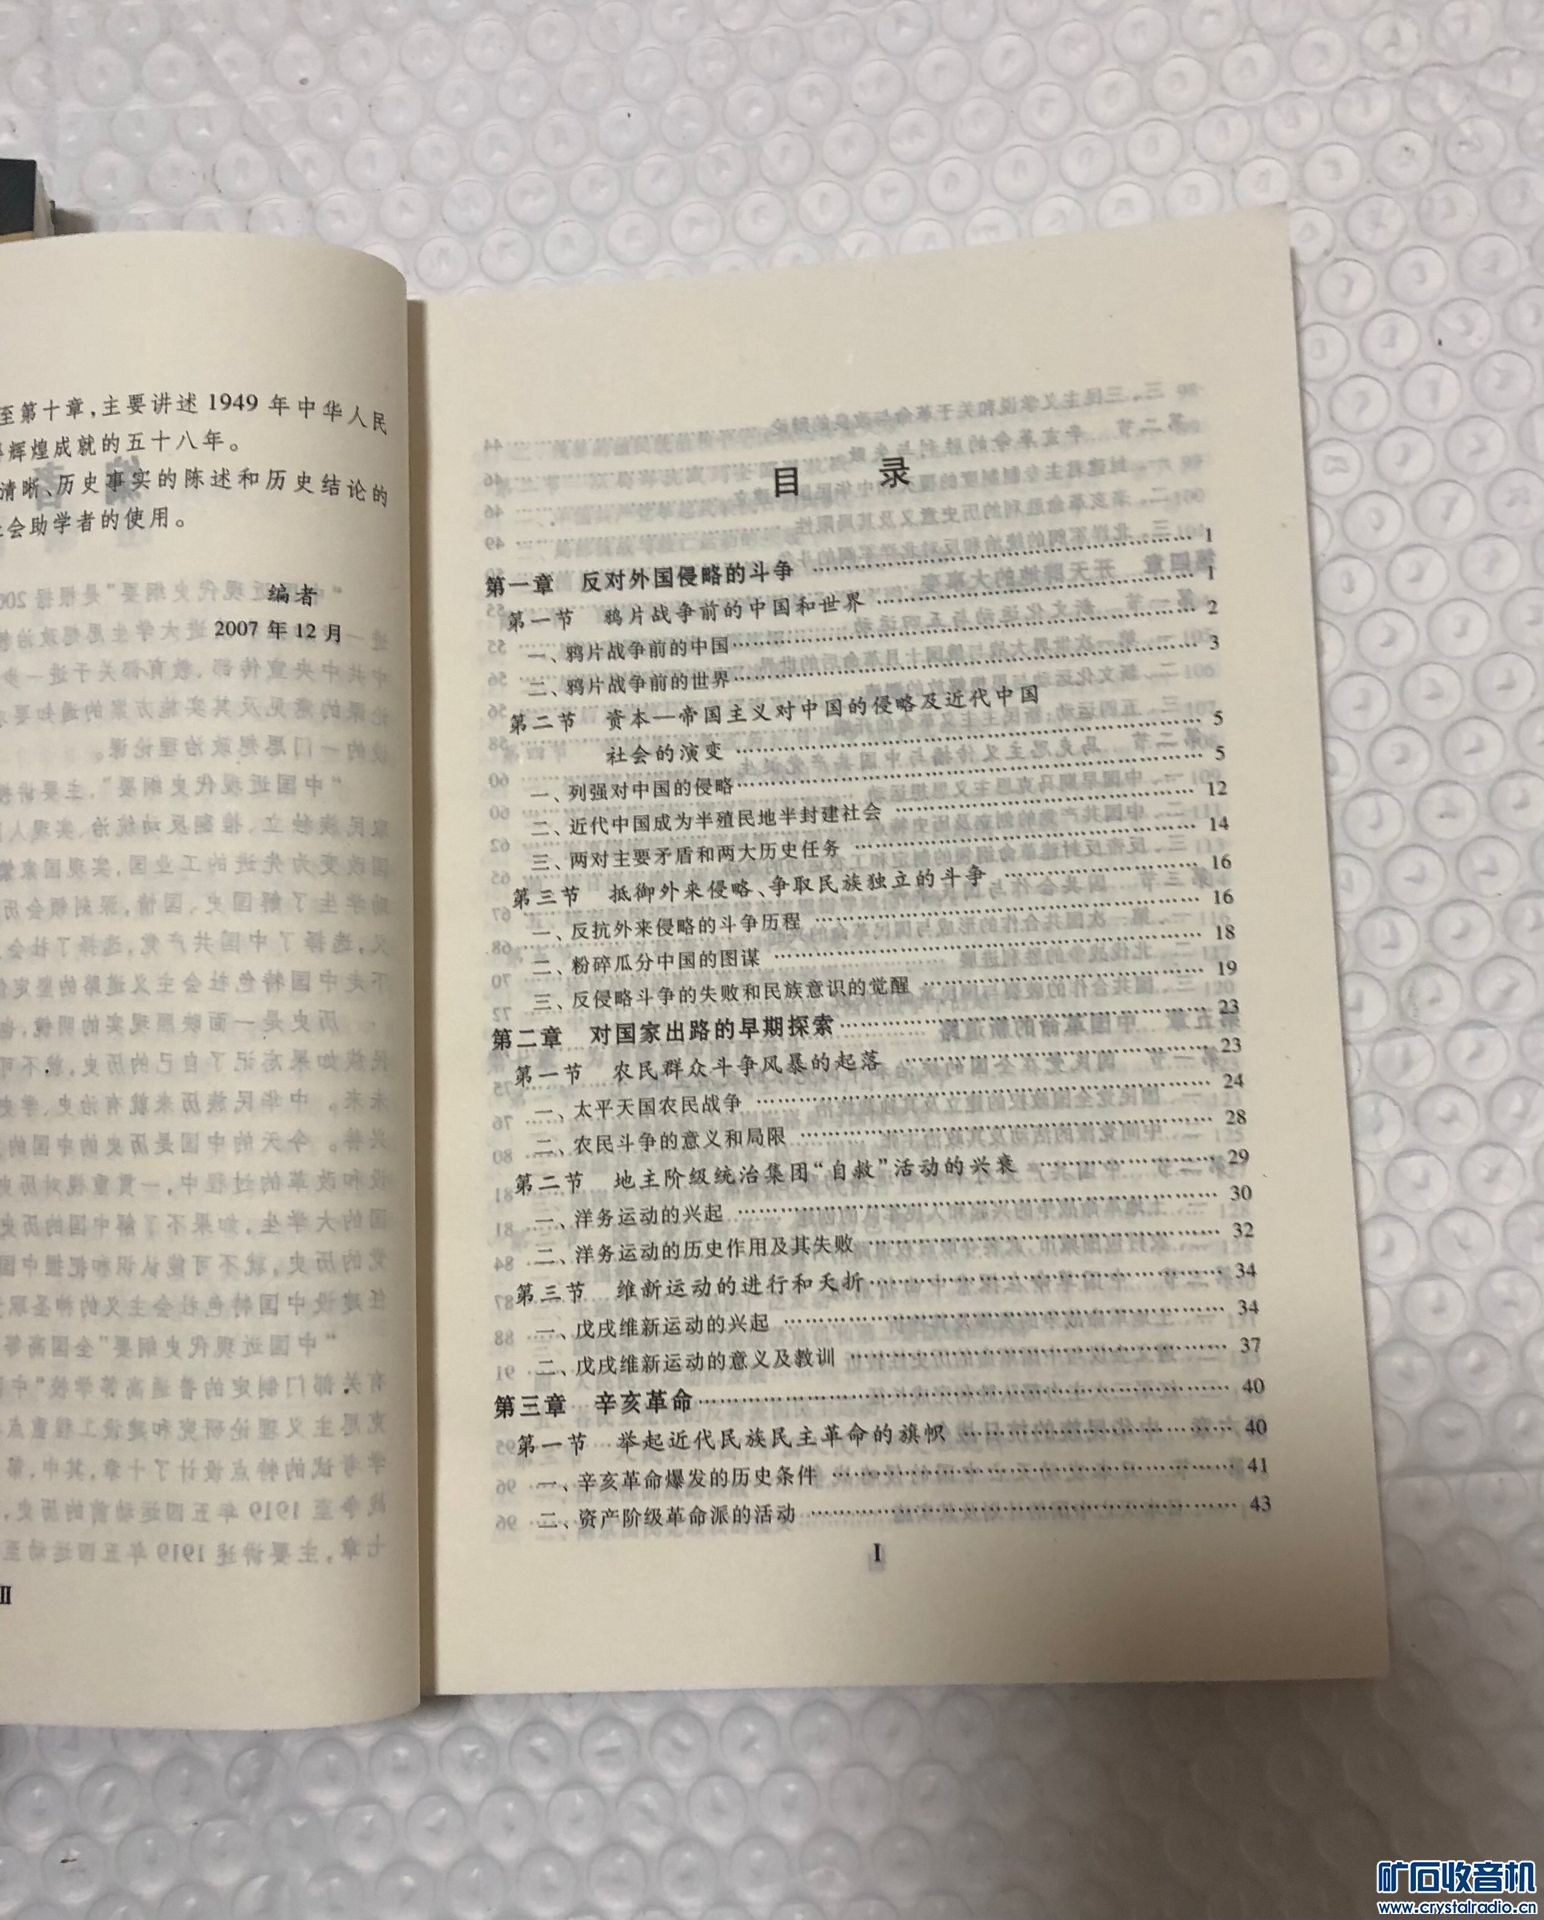 至第十章,主要讲述 1949 年中华人民
辉煌成就的五十八年。
清晰、历史事实的陈述和历史结论的
会助学者的使用。
编者
2007 年 12 月
II
目 录
第一章 反对外国侵略的斗争 …… 1
第一节 鸦片战争前的中国和世界 …… 1
一、鸦片战争前的中国 …… 2
二、鸦片战争前的世界 …… 3
第二节 资本—帝国主义对中国的侵略及近代中国
社会的演变 …… 5
一、列强对中国的侵略 …… 5
二、近代中国成为半殖民地半封建社会 …… 12
三、两对主要矛盾和两大历史任务 …… 14
第三节 抵御外来侵略、争取民族独立的斗争 …… 16
一、反抗外来侵略的斗争历程 …… 16
二、粉碎瓜分中国的图谋 …… 18
三、反侵略斗争的失败和民族意识的觉醒 …… 19
第二章 对国家出路的早期探索 …… 23
第一节 农民群众斗争风暴的起落 …… 23
一、太平天国农民战争 …… 24
二、农民斗争的意义和局限 …… 28
第二节 地主阶级统治集团“自救”活动的兴衰 …… 29
一、洋务运动的兴起 …… 30
二、洋务运动的历史作用及其失败 …… 32
第三节 维新运动的进行和夭折 …… 34
一、戊戌维新运动的兴起 …… 34
二、戊戌维新运动的意义及教训 …… 37
第三章 辛亥革命 …… 40
第一节 举起近代民族民主革命的旗帜 …… 40
一、辛亥革命爆发的历史条件 …… 41
二、资产阶级革命派的活动 …… 43
I
矿石收音机
www.crystalradio.cn